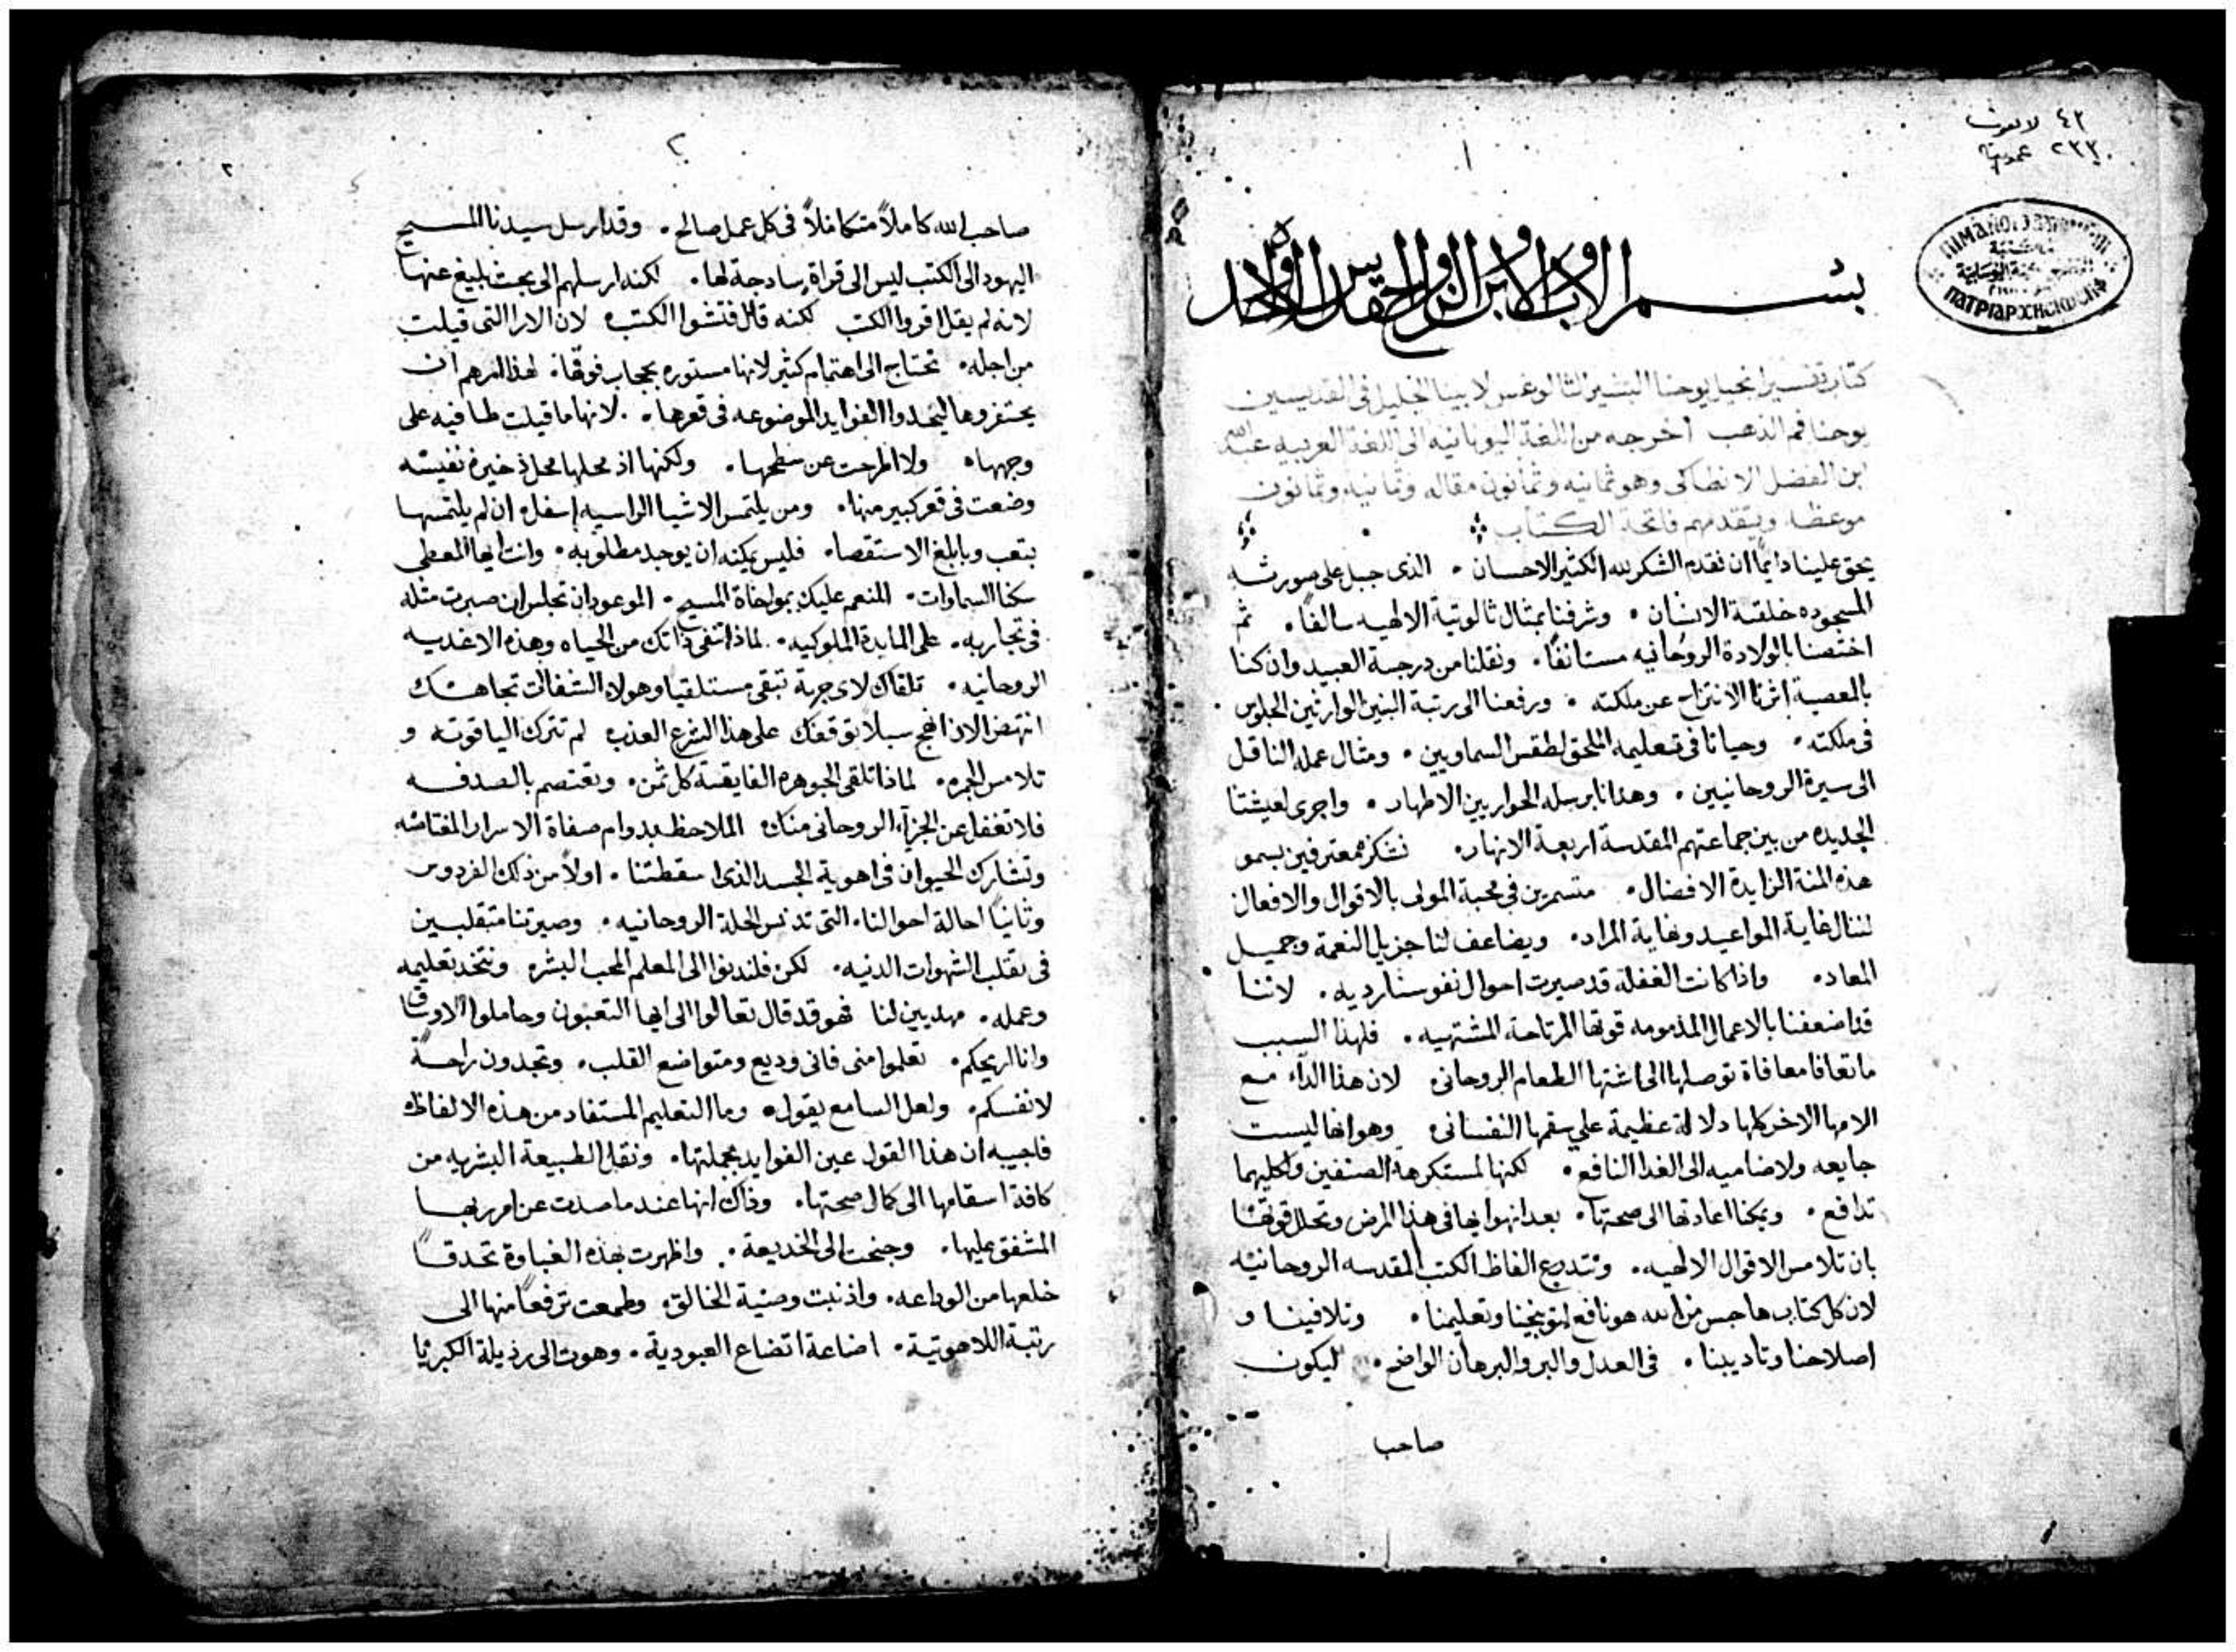 ٤٢ لاهوت
٢٢٣٠ عمومية
١
بسم الاب والابن والروح القدس الاله الواحد
كتاب تفسير انجيل يوحنا البشير الثالوغس لابينا الجليل في القديسين
يوحنا فم الذهب اخرجه من اللغة اليونانيه الى اللغة العربيه عبدالله
ابن الفضل الانطاكى وهو ثمانيه وثمانون مقاله وثمانيه وثمانون
موعظه ويتقدمهم فاتحة الكتاب
يحق علينا دايمًا ان نقدم الشكر لله الكثير الاحسان . الذى جبل على صورته
المسجوده خلقة الانسان . وشرفنا بمثال ثالوثية الالهيه سالفًا . ثم
اختصنا بالولادة الروحانيه مستانفًا . ونقلنا من درجة العبيد وان كنا
بالمعصية اثرنا الانتزاح عن ملكته . ورفعنا الى رتبة البنين الوارثين الجلوس
فى ملكته . وحيانا فى تعليمه الملحق لطقس السماويين . ومثال عمله الناقل
الى سيرة الروحانيين . وهدانا برسله الحواريين الاطهار . واجرى لعيشتنا
الجديده من بين جماعتهم المقدسة اربعة الانهار . نشكره معترفين بسمو
هذه المنة الزايدة الافضال . متسمرين فى محبة المولى بالاقوال والافعال
لننال غاية المواعيد ونهاية المراد . ويضاعف لنا جزيل النعمة وجميل
المعاد . واذا كانت الغفلة قد صيرت احوال نفوسنا رديه . لاننا
قد اضعفنا بالاعمال المذمومه قوتها المرتاحة المشتهيه . فلهذا السبب
ما تعافا معافاة توصلها الى اشتها الطعام الروحانى . لان هذا الدآء مع
الامها الاخر كلها دلالة عظيمة على سقمها النفسانى . وهو انها ليست
جايعه ولا ضاميه الى الغدا النافع . لكنها لمستكرهة الصنفين ولكليهما
تدافع . ويمكنا اعادتها الى صحتها . بعد انهوابها فى هذا المرض وتحلل قوتها
بان تلامس الاقوال الالهيه . وتتدرع الفاظ الكتب المقدسه الروحانيه
لان كل كتاب هاجس من الله هو نافع لتوبيخنا وتعليمنا . وتلافينا و
اصلاحنا وتاديبنا . فى العدل والبر والبرهان الواضح . ليكون
صاحب
٢
٢
صاحب الله كاملاً متكاملاً فى كل عمل صالح . وقد ارسل سيدنا المسيح
اليهود الى الكتب ليس الى قراة سادجة لها . لكنه ارسلهم الى بحث بليغ عنها
لانه لم يقل اقروا الكتب لكنه قال فتشوا الكتب . لان الارا التى قيلت
من اجله . تحتاج الى اهتمام كثير لانها مستوره بحجاب فوقها . لهذا امرهم ان
يحتفروها ليجدوا الفوايد الموضوعه فى قعرها . لانها ما قيلت طافيه على
وجهها . ولا المرحت عن سطحها . ولكنها اذ محلها محل ذخيرة نفيسه
وضعت فى قعر كبير منها . ومن يلتمس الاشيا الراسيه اسفل ان لم يلتمسها
بتعب وبابلغ الاستقصا . فليس يمكنه ان يوجد مطلوبه . وانت ايها المعطى
سكنا السماوات . المنعم عليك بمواخاة المسيح . الموعود ان تجلس ان صبرت مثله
فى تجاربه . على المايدة الملوكيه . لماذا تنفى ذاتك من الحياه وهذه الاغديه
الروحانيه . تلقاك لاى جربة تبقى مستلقيا وهولا الشفالت تجاهك
انتهض الان انهج سبلاً توقفك على هذا الشرع العذب لم تترك الياقوته و
تلامس الجمره . لماذا تلقى الجوهره الفايقة كل ثمن . وتعتصم بالصدفه
فلا تغفل عن الجزء الروحانى منك . الملاحظ بدوام صفاة الاسرار المفتاشه
وتشارك الحيوان فى اهوية الجسد الذى اسقطتنا . اولاً من ذلك الفردوس
وثانيًا احالة احوالنا . التى تدنس الحلة الروحانيه . وصيرتنا متقلبين
فى تقلب الشهوات الدنيه . لكن فلندنوا الى المعلم المحب البشر . ونتخد تعليمه
وعمله . مهديين لنا فهو قد قال تعالوا الى ايها التعبون وحاملوا الاوساق
وانا اريحكم . تعلموا منى فانى وديع ومتواضع القلب . وتجدون راحةً
لانفسكم . ولعل السامع يقول . وما التعليم المستفاد من هذه الالفاظ
فاجيبه ان هذا القول عين الفوايد بجملتها . ونقل الطبيعة البشريه من
كافة اسقامها الى كمال صحتها . وذاك انها عندما صدت عن امر ربها
المشفق عليها . وجنحت الى الخديعة . واظهرت بهذه الغباوة تحدقًا
خلعها من الوداعه . واذ نبت وصية الخالق . وطمعت ترفعًا منها الى
رتبة اللاهوتية . اضاعة اتضاع العبودية . وهوت الى رذيلة الكبريا